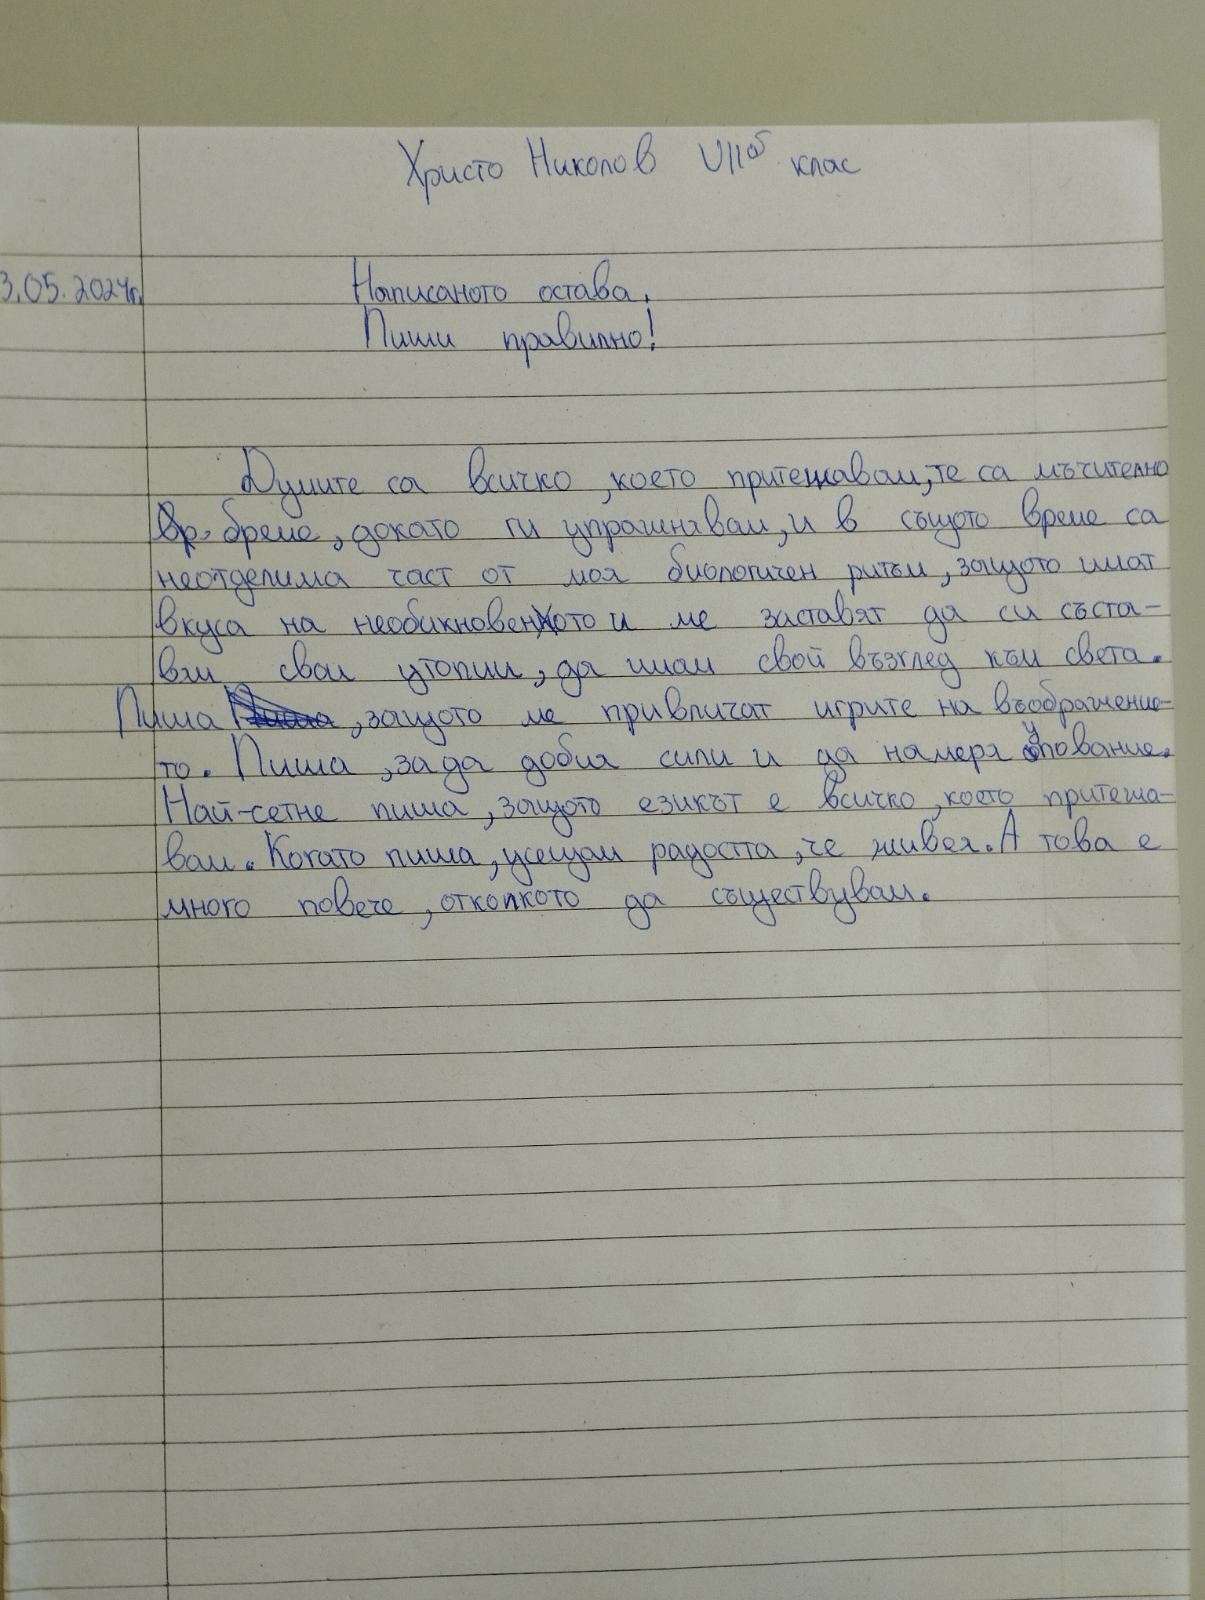 Христо Николов VIIб клас
3.05.2024г.
Написаното остава.
Пиши правилно!
Думите са всичко, което притежавам, те са мъчително
бреме, докато ги упражнявам, и в същото време са
неотделима част от моя биологичен ритъм, защото имат
вкуса на необикновеното и ме заставят да си съста-
вям свои утопии, да имам свой възглед към света.
Пиша, защото ме привличат игрите на въображение-
то. Пиша, за да добия сили и да намеря упование.
Най-сетне пиша, защото езикът е всичко, което притежа-
вам. Когато пиша, усещам радостта, че живея. А това е
много повече, отколкото да съществувам.